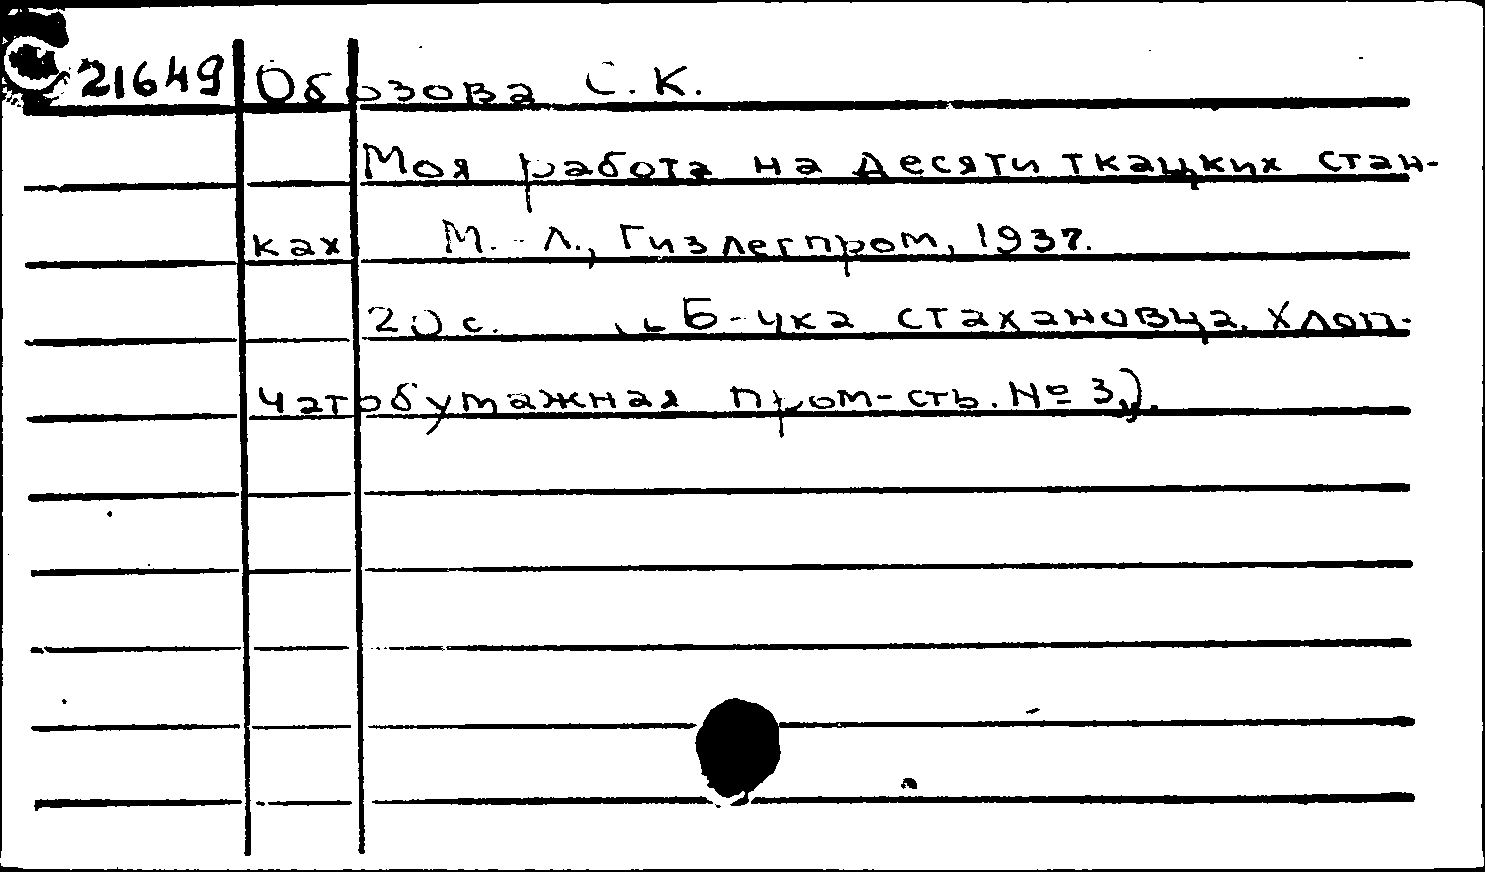 21649 Обозова С. К.
Моя работа на десяти ткацких стан-
ках М.-Л., Гизлегпром, 1937.
20 с. „Б-чка стахановца. Хлоп-
чатобумажная пром-сть. № 3").